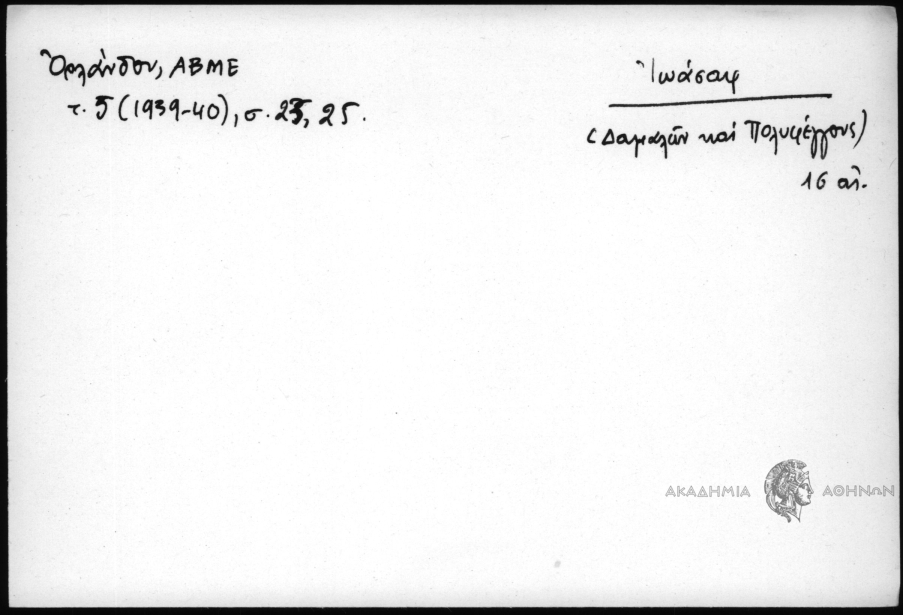 Ὀρλάνδου, ΑΒΜΕ
τ. 5 (1939-40), σ. 25.
Ἰωάσαφ
(Δαμαλῶν καί Πολυφέγγους)
16 αἰ.
ΑΚΑΔΗΜΙΑ ΑΘΗΝΩΝ